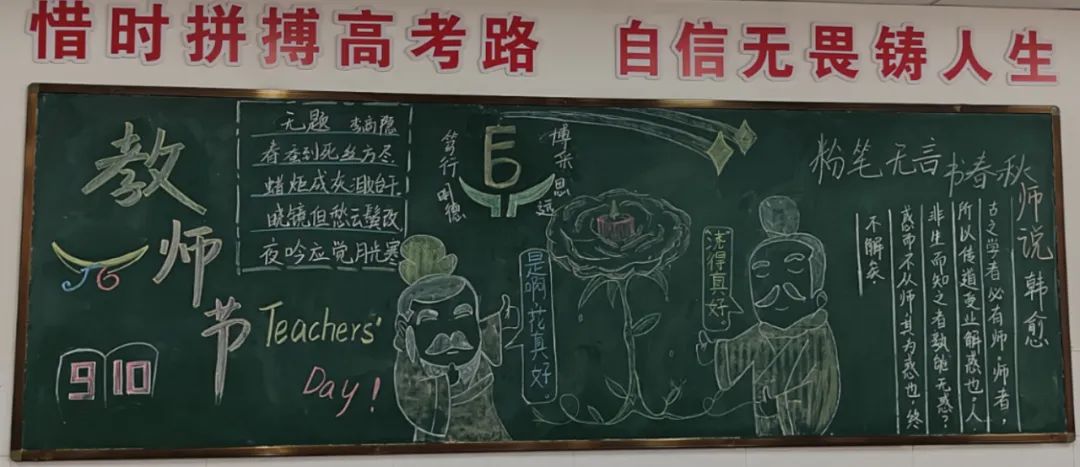 惜时拼搏高考路 自信无畏铸人生
教师节
Teachers'
Day!
9 10
无题 李商隐
春蚕到死丝方尽
蜡炬成灰泪始干
晓镜但愁云鬓改
夜吟应觉月光寒
笃行
明德
博采
思远
是啊,花真好。
浇得真好。
粉笔无言书春秋
师说 韩愈
古之学者必有师.师者,
所以传道受业解惑也.人
非生而知之者孰能无惑?
惑而不从师.其为惑也.终
不解矣.